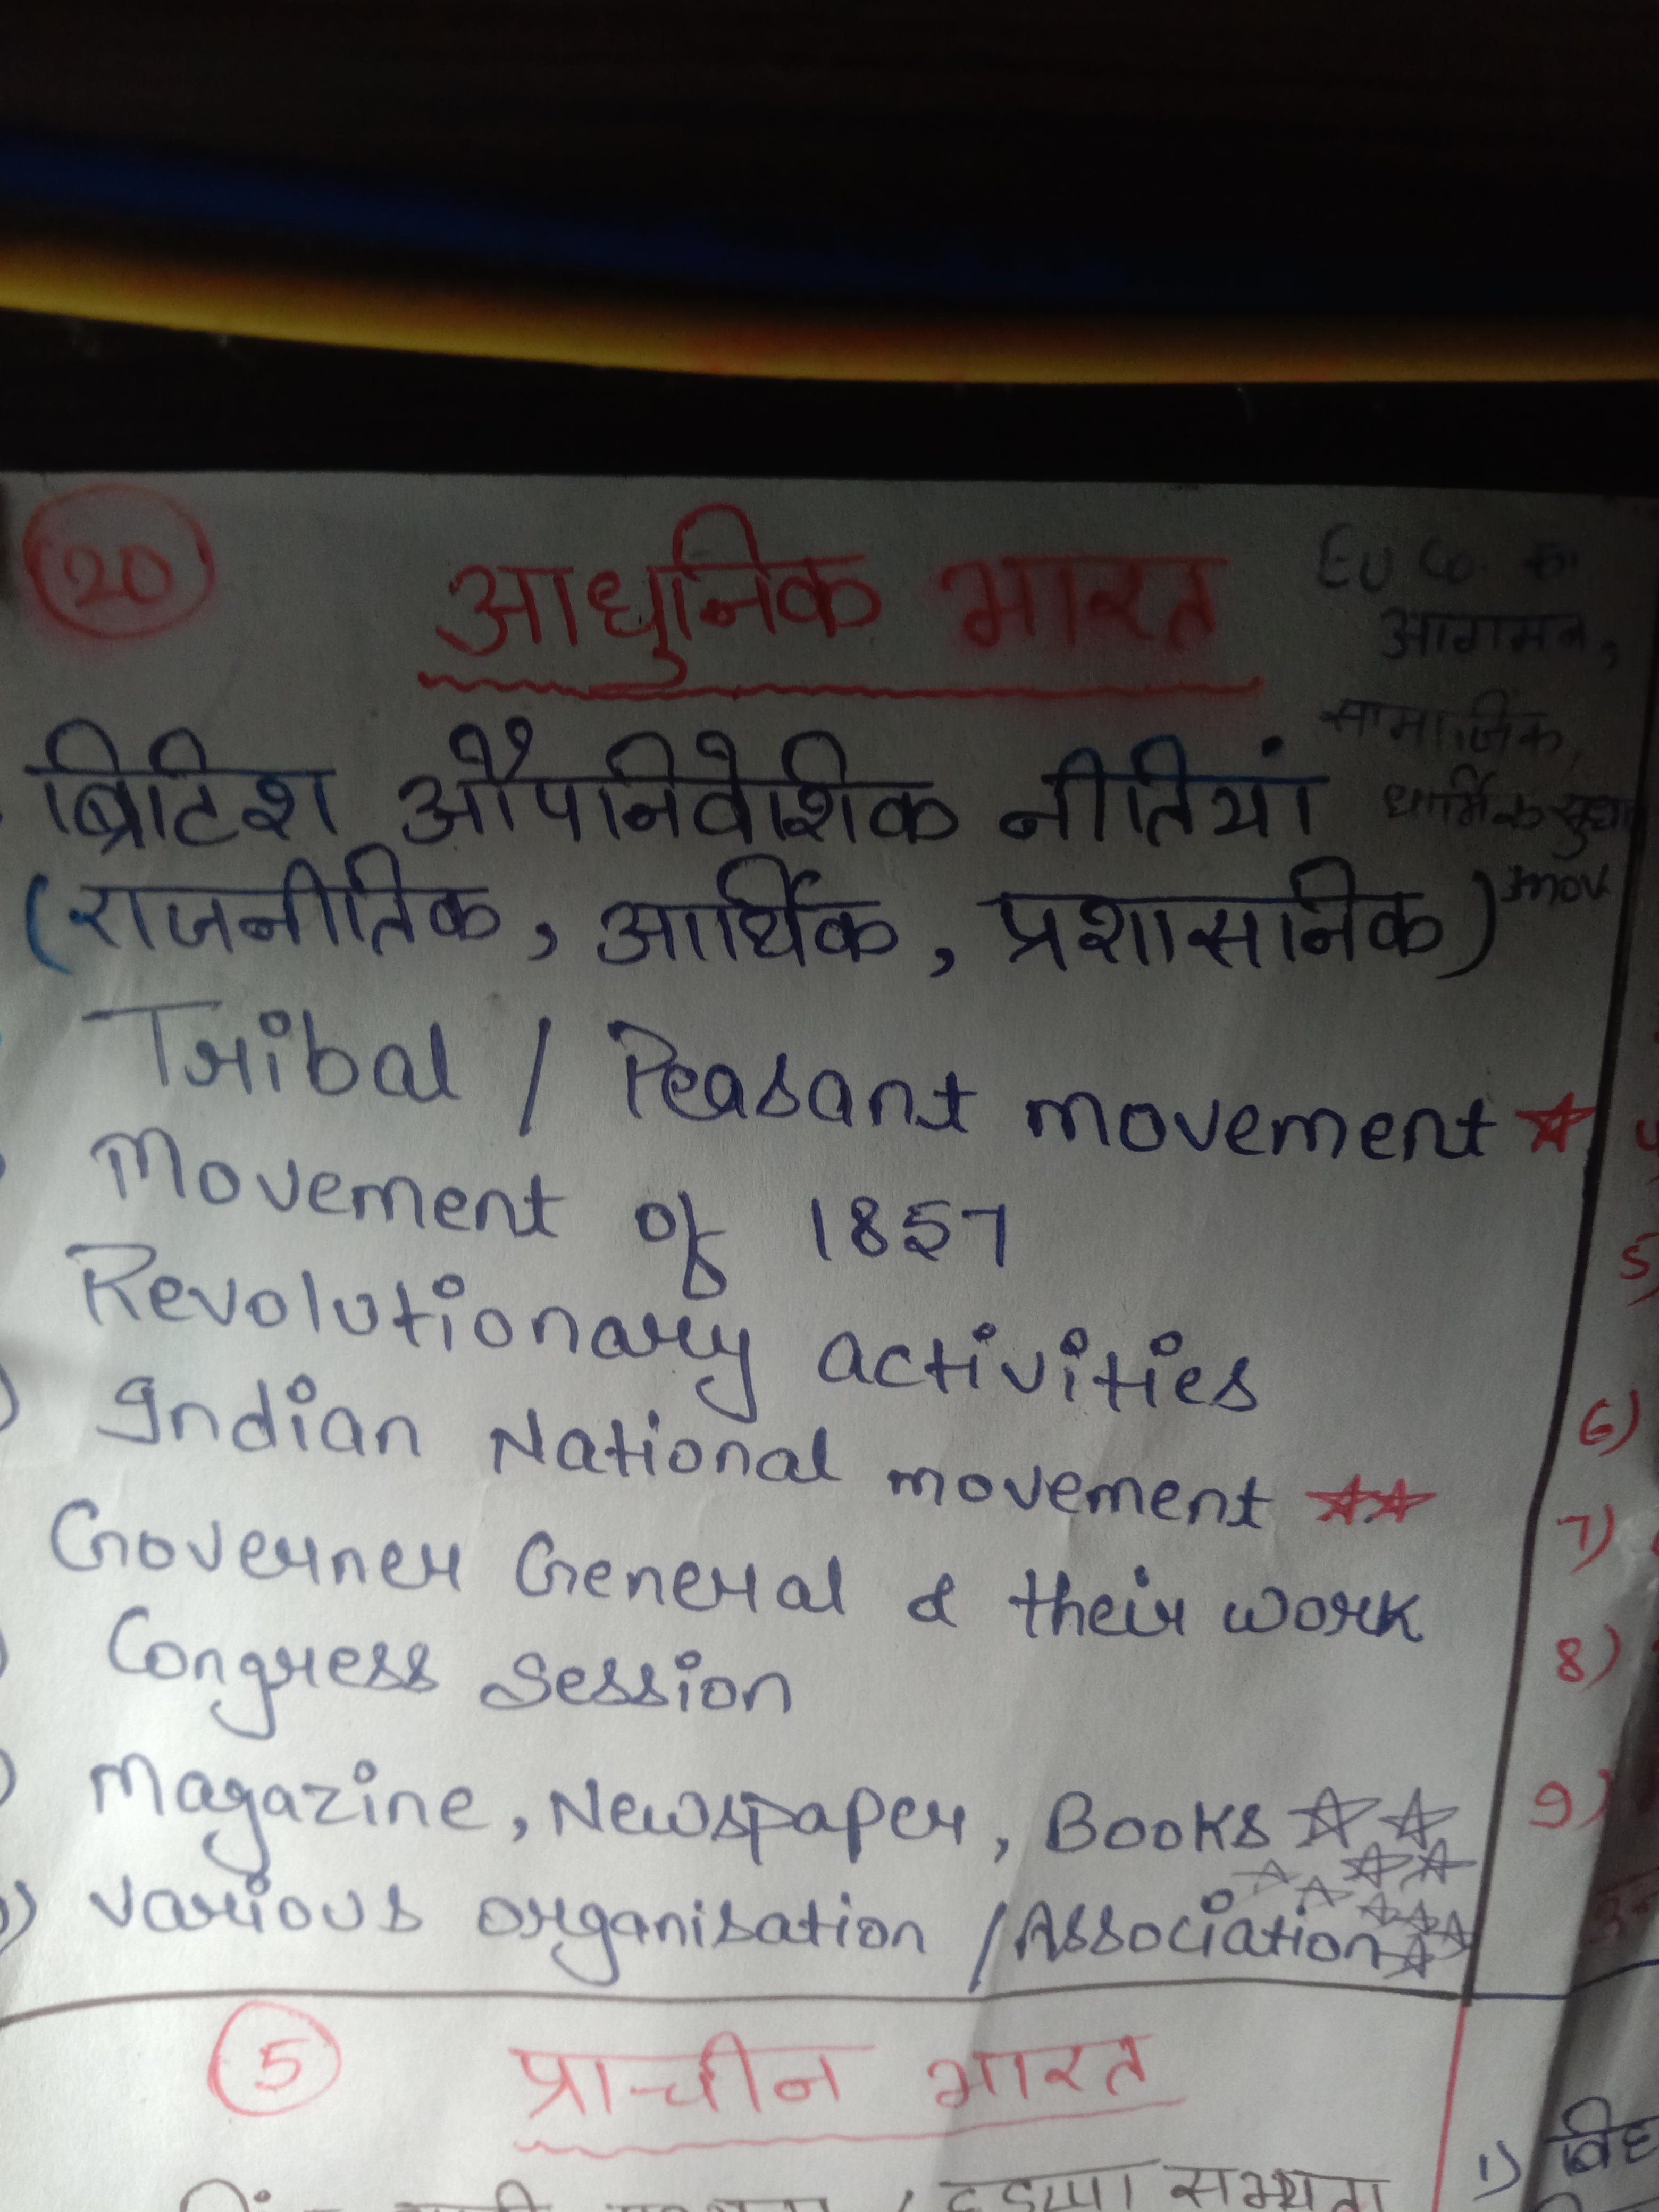 20 आधुनिक भारत
EU Co. का
आगमन,
सामाजिक,
धार्मिक
mov.
ब्रिटिश औपनिवेशिक नीतियां
(राजनीतिक, आर्थिक, प्रशासनिक)
Tribal / Peasant movement
Movement of 1857
Revolutionary activities
Indian National movement
Governer General & their work
Congress Session
Magazine, Newspaper, Books
various organisation / Association
5)
6)
7)
8)
9)
5 प्राचीन भारत
हड़प्पा सभ्यता
1)